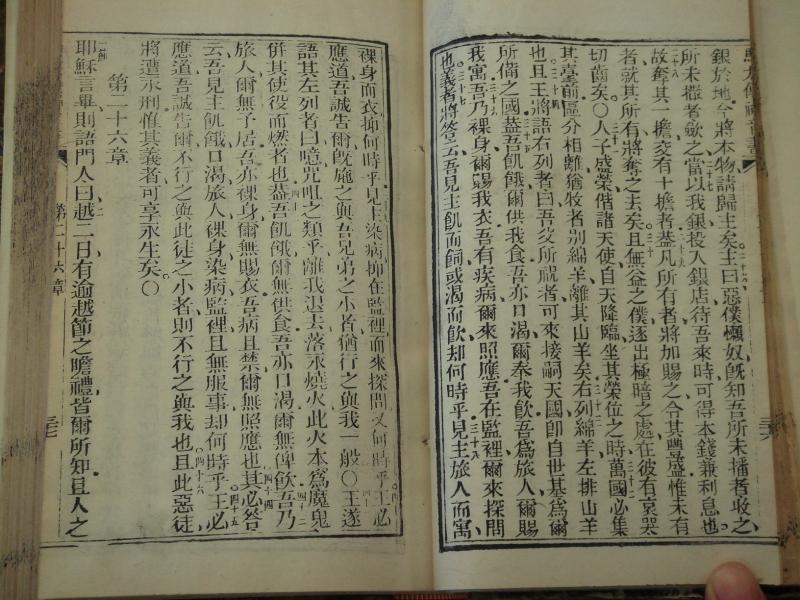 銀於地今將本物請歸主矣主曰惡僕懶奴既知吾所未播者收之
所未撒者歛之當以我銀投入銀店待吾來時可得本錢兼利息也
故奪其一擔交有十擔者葢凡所有者將加賜之令其豐盛惟未有
者就其所有將奪之去矣且無益之僕逐出極暗之處在彼有哀哭
切齒矣〇人子盛榮偕諸天使自天降臨坐其榮位之時萬國必集
其臺前區分相離猶牧者別綿羊離其山羊矣右列綿羊左排山羊
也且王將語右列者曰吾父所祝者可來接嗣天國即自世基爲爾
所備之國葢吾飢餓爾供我食吾亦口渴爾奉我飲吾爲旅人爾賜
我寓吾乃裸身爾賜我衣吾有疾病爾來照應吾在監裡爾來探問
也義者將答云吾見主飢而飼或渴而飲却何時乎見主旅人而寓
裸身而衣抑何時乎見主染病抑在監裡而來探問又何時乎王必
應道吾誠告爾既施之與吾兄弟之小者猶行之與我一般〇王遂
語其左列者曰噫咒咀之類乎離我退去落永燒火此火本爲魔鬼
併其使役而燃者也葢吾飢餓爾無供食吾亦口渴爾無俾飲吾乃
旅人爾無子居吾亦裸身爾無賜衣吾病且禁爾無照應也其必答
云吾見主飢餓口渴旅人裸身染病監裡且無服事却何時乎王必
應道吾誠告爾不行之與此徒之小者則不行之與我也且此惡徒
將遭永刑惟其義者可享永生矣〇
第二十六章
耶穌言畢則語門人曰越二日有逾越節之瞻禮皆爾所知且人之
第二十六章